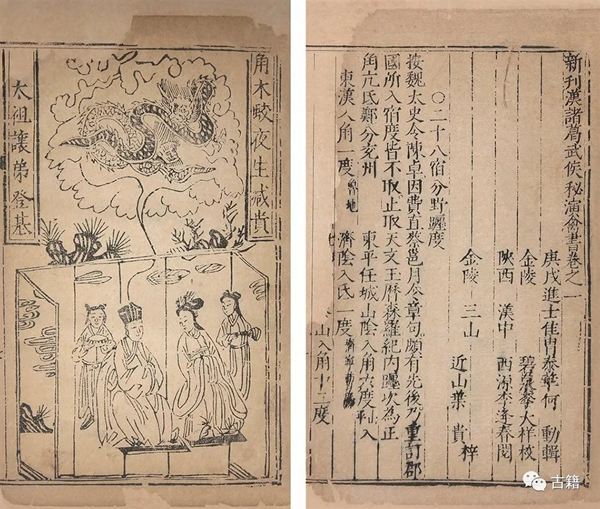 新刊漢諸葛武侯秘演禽書卷之一
庚戌進士佳冑泰華何 動輯
金陵 大祥校
陝西 漢中 西源李逢春閱
金陵 三山 近山葉貴梓
○二十八宿分野躔度
按魏太史令陳卓因費直蔡邕月令章句頗有先後乃重訂郡
國所入宿度皆不取止取天文王曆森羅紀內躔次為正
角亢氐鄭分兗州 東平任城山陰入角六度 入
東漢入角一度 魯地 濟陰入氐一度
山入角十二度
角木蛟夜生減貴
太祖讓弟登基
古籍